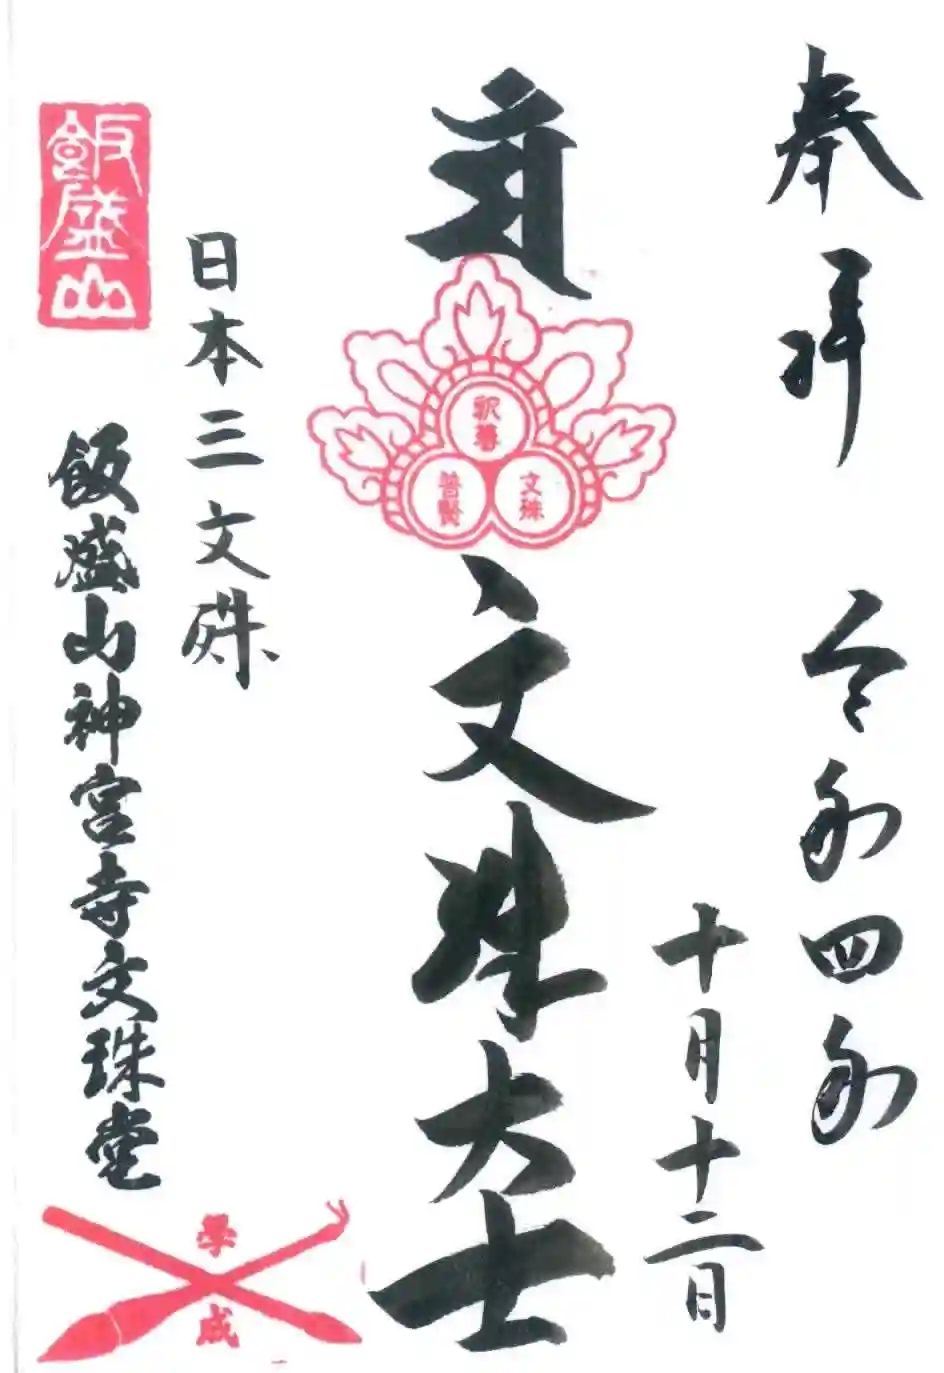 奉拝 令和四年
十月十二日
釈尊
文殊
普賢
文殊大士
日本三文殊
飯盛山
飯盛山神宮寺文珠堂
學成